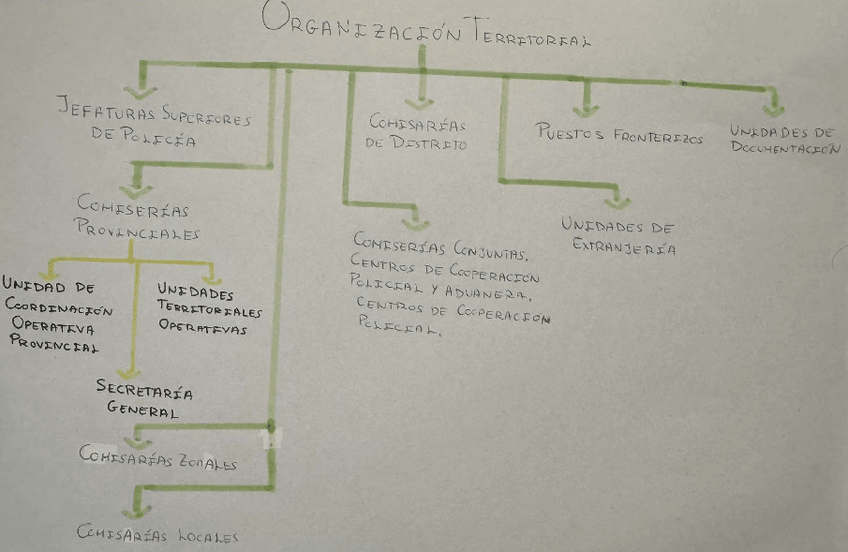 ORGANIZACIÓN TERRITORIAL
JEFATURAS SUPERIORES
DE POLICÍA
COMISARÍAS
DE DISTRITO
PUESTOS FRONTERIZOS
UNIDADES DE
DOCUMENTACIÓN
COMISERÍAS
PROVINCIALES
UNIDADES DE
EXTRANJERÍA
COMISERÍAS CONJUNTAS.
CENTROS DE COOPERACIÓN
POLICIAL Y ADUANERA.
CENTROS DE COOPERACIÓN
POLICIAL.
UNIDAD DE
COORDINACIÓN
OPERATIVA
PROVINCIAL
UNIDADES
TERRITORIALES
OPERATIVAS
SECRETARÍA
GENERAL
COMISARÍAS ZONALES
COMISARÍAS LOCALES